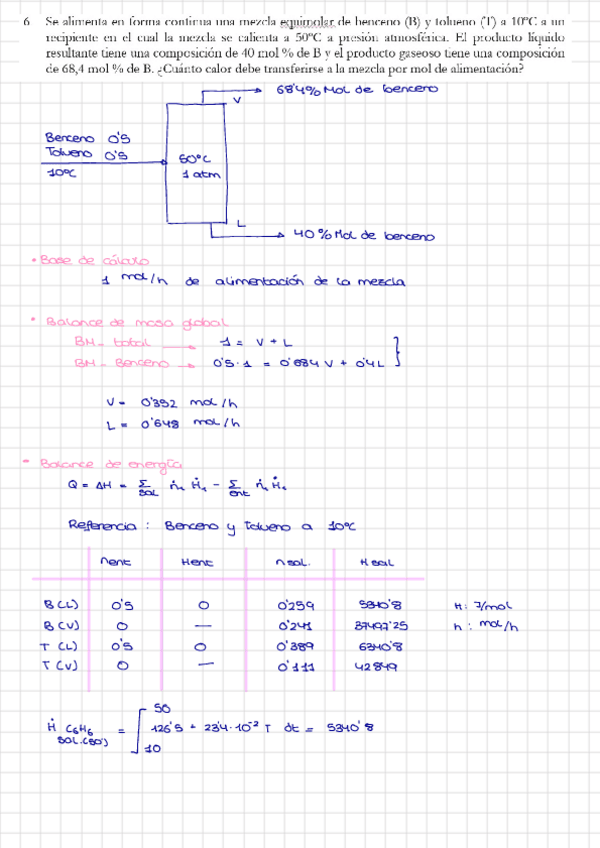 6 Se alimenta en forma continua una mezcla equimolar de benceno (B) y tolueno (T) a 10°C a un
recipiente en el cual la mezcla se calienta a 50°C a presión atmosférica. El producto líquido
resultante tiene una composición de 40 mol % de B y el producto gaseoso tiene una composición
de 68,4 mol % de B. ¿Cuánto calor debe transferirse a la mezcla por mol de alimentación?
68'4% Mol de benceno
V
Benceno 0'5
Tolueno 0'5
10°C
50°C
1 atm
L
40% Mol de benceno
• Base de cálculo
1 mol/h de alimentación de la mezcla
• Balance de masa global
BM - total → 1 = V + L
BM - Benceno → 0'5 · 1 = 0'684 V + 0'4 L
V = 0'352 mol/h
L = 0'648 mol/h
• Balance de energía
Q = ΔH = Σ sal ṅi Ĥi - Σ ent ṅi Ĥi
Referencia : Benceno y Tolueno a 10°C
nent Hent nsal. Hsal
B (L) 0'5 0 0'259 5340'8 H: J/mol
B (V) 0 — 0'241 37497'25 n: mol/h
T (L) 0'5 0 0'389 6340'8
T (V) 0 — 0'111 42849
Ḣ C6H6 SOL.(50°) = ∫ 50 10 126'5 + 23'4·10⁻² T dt = 5340'8